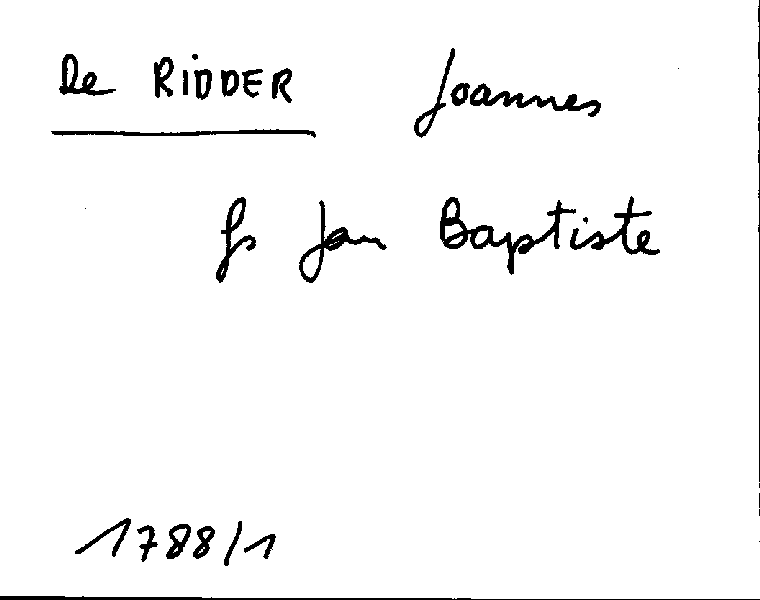 De RIDDER Joannes
fs Jan Baptiste
1788/1